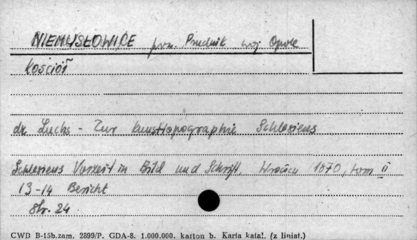 NIEMYSŁOWICE pow. Prudnik woj. Opole
Kościół
dr. Luchs - Zur Kunsttopographie Schlesiens
Schlesiens Vorzeit in Bild und Schrift, Wrocław 1870, tom II
13-14 Bericht
Str. 24
CWD B-15b.zam. 2899/P. GDA-8. 1.000.000. karton b. Karta katal. (z liniat.)